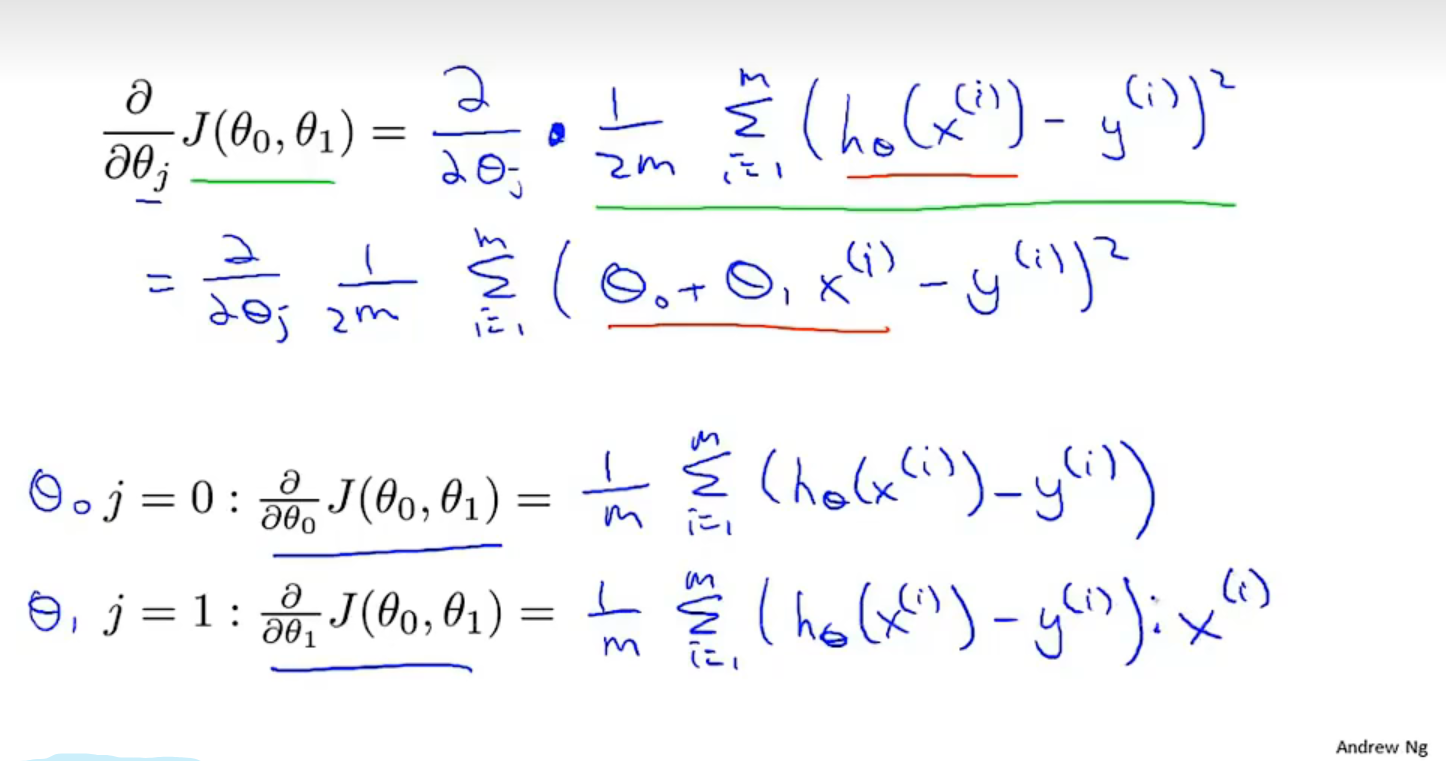 ∂/∂θⱼ J(θ₀, θ₁) = ∂/∂θⱼ · 1/2m ∑ᵢ₌₁ᵐ (h_θ(x⁽ⁱ⁾) - y⁽ⁱ⁾)²
= ∂/∂θⱼ 1/2m ∑ᵢ₌₁ᵐ (θ₀ + θ₁ x⁽ⁱ⁾ - y⁽ⁱ⁾)²
θ₀ j = 0 : ∂/∂θ₀ J(θ₀, θ₁) = 1/m ∑ᵢ₌₁ᵐ (h_θ(x⁽ⁱ⁾) - y⁽ⁱ⁾)
θ₁ j = 1 : ∂/∂θ₁ J(θ₀, θ₁) = 1/m ∑ᵢ₌₁ᵐ (h_θ(x⁽ⁱ⁾) - y⁽ⁱ⁾) · x⁽ⁱ⁾
Andrew Ng